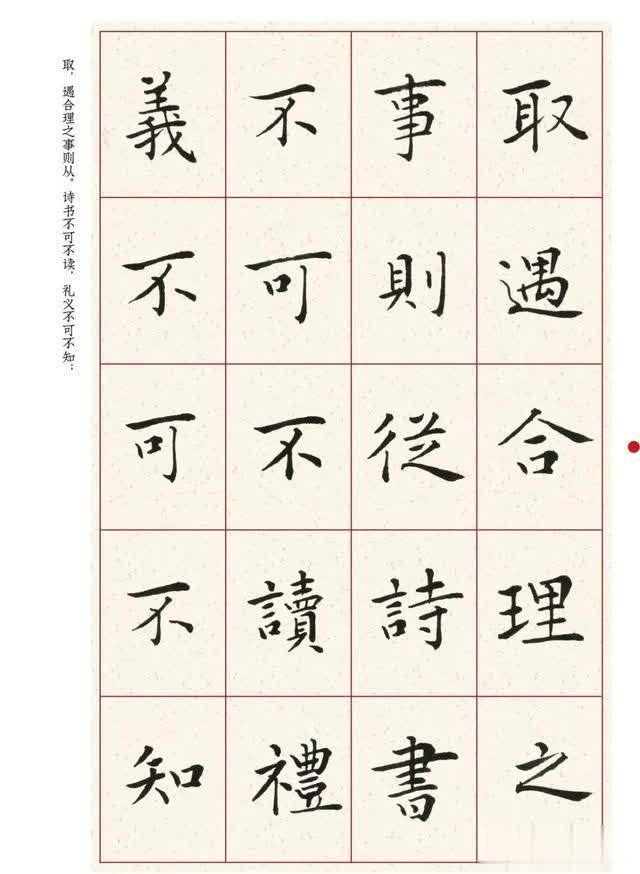 取遇合理之
事則從詩書
不可不讀禮
義不可不知
取，遇合理之事则从。诗书不可不读，礼义不可不知；